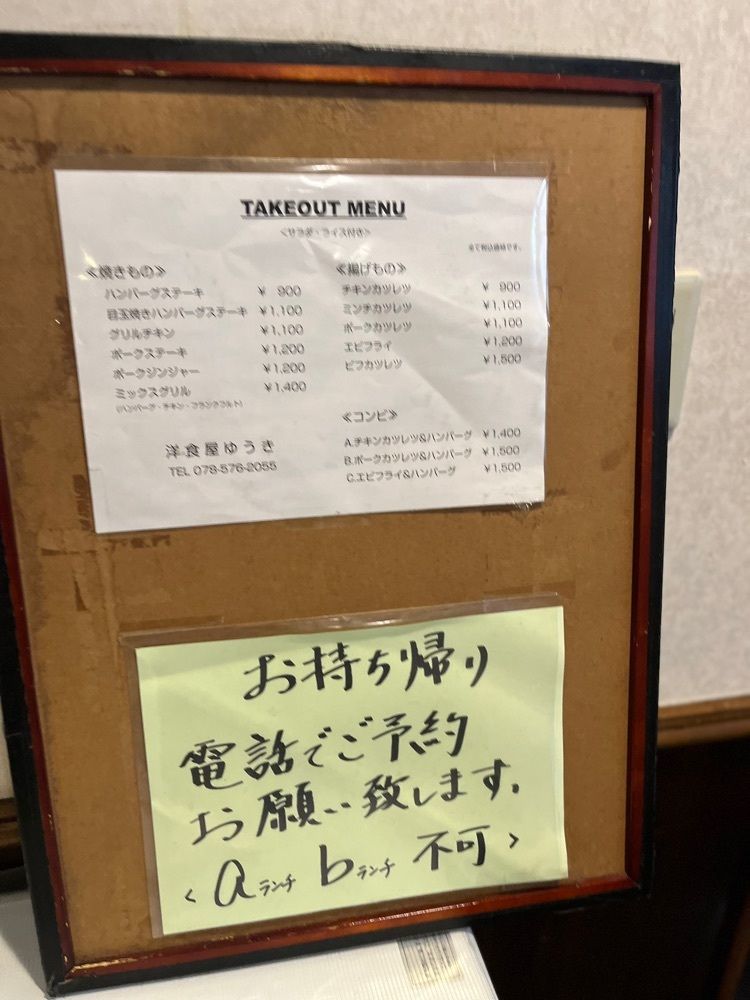 TAKEOUT MENU
<サラダ・ライス付き>
全て税込価格です。
≪焼きもの≫
ハンバーグステーキ ¥ 900
目玉焼きハンバーグステーキ ¥1,100
グリルチキン ¥1,100
ポークステーキ ¥1,200
ポークジンジャー ¥1,200
ミックスグリル ¥1,400
(ハンバーグ・チキン・フランクフルト)
洋食屋ゆうき
TEL 078-576-2055
≪揚げもの≫
チキンカツレツ ¥ 900
ミンチカツレツ ¥1,100
ポークカツレツ ¥1,100
エビフライ ¥1,200
ビフカツレツ ¥1,500
≪コンビ≫
A.チキンカツレツ&ハンバーグ ¥1,400
B.ポークカツレツ&ハンバーグ ¥1,500
C.エビフライ&ハンバーグ ¥1,500
お持ち帰り
電話でご予約
お願い致します。
<aランチ bランチ 不可>